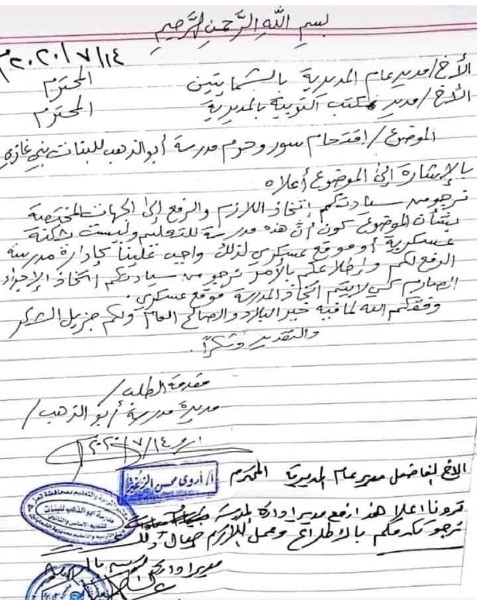 بسم الله الرحمن الرحيم
٢٠٢٠/٧/١٤م
الأخ/ مدير عام المديرية بالشمايتين المحترم
الأخ/ مدير مكتب التربية بالمديرية المحترم
الموضوع/ اقتحام سور وحوم مدرسة أبو الذهب للبنات بني غازي
بالإشارة إلى الموضوع أعلاه
نرجو من سيادتكم اتخاذ اللازم والرفع إلى الجهات المختصة
بشأن الموضوع كون أن هذه مدرسة للتعليم وليست ثكنة
عسكرية أو موقع عسكري لذلك واجب علينا كإدارة مدرسة
الرفع لكم وإطلاعكم بالأمر نرجو من سيادتكم اتخاذ الإجراء
الصارم كي لا يتم اتخاذ المدرسة موقع عسكري.
وفقكم الله لما فيه خير البلاد والصالح العام ولكم جزيل الشكر
والتقدير وشكراً.
مقدمة الطلب/
مديرة مدرسة/ أبو الذهب/
٢٠٢٠/٧/١٤
أ/ أروى محسن
الاخ الفاضل مدير عام المديرية المحترم
اعلا هذا رفع مدير ادارة المدرسة
نرجو تكرمكم بالاطلاع وعمل اللازم حيال ذلك
مدير ادارة